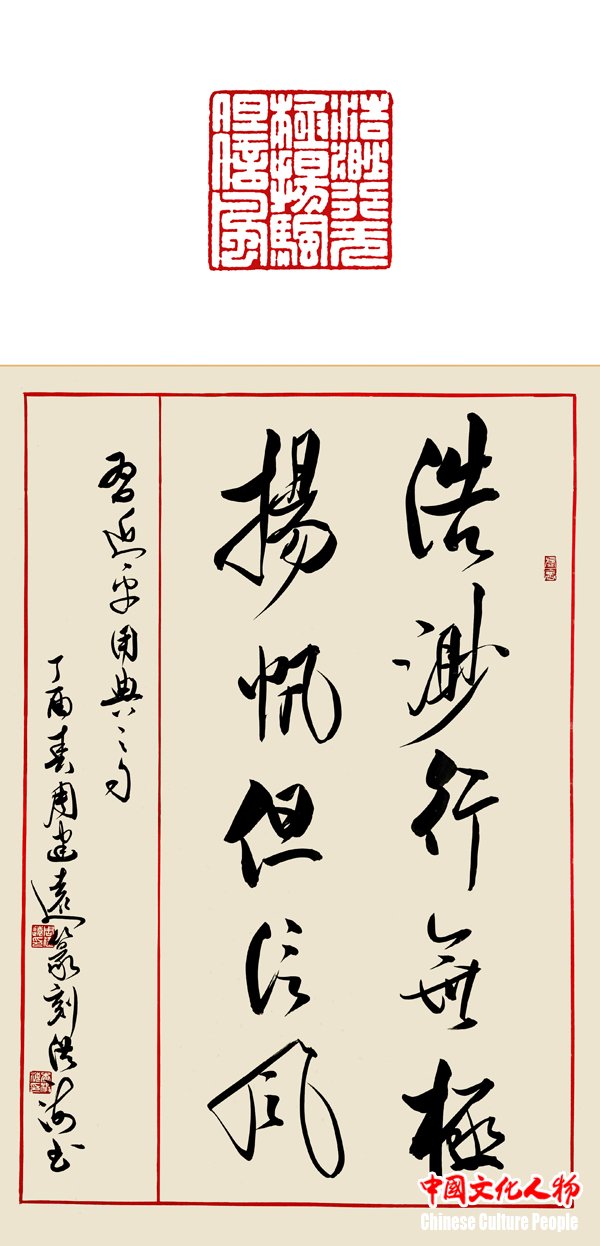 浩渺行无
極揚颿
但信風
浩渺行無極
揚帆但信風
習近平用典之句
丁酉春周建遠篆刻洪海书
中國文化人物
Chinese Culture People